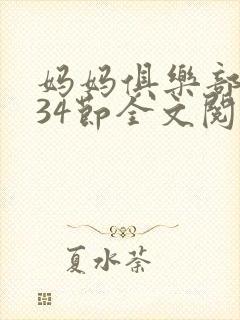 妈妈俱樂部
34節全文閱
夏水荼